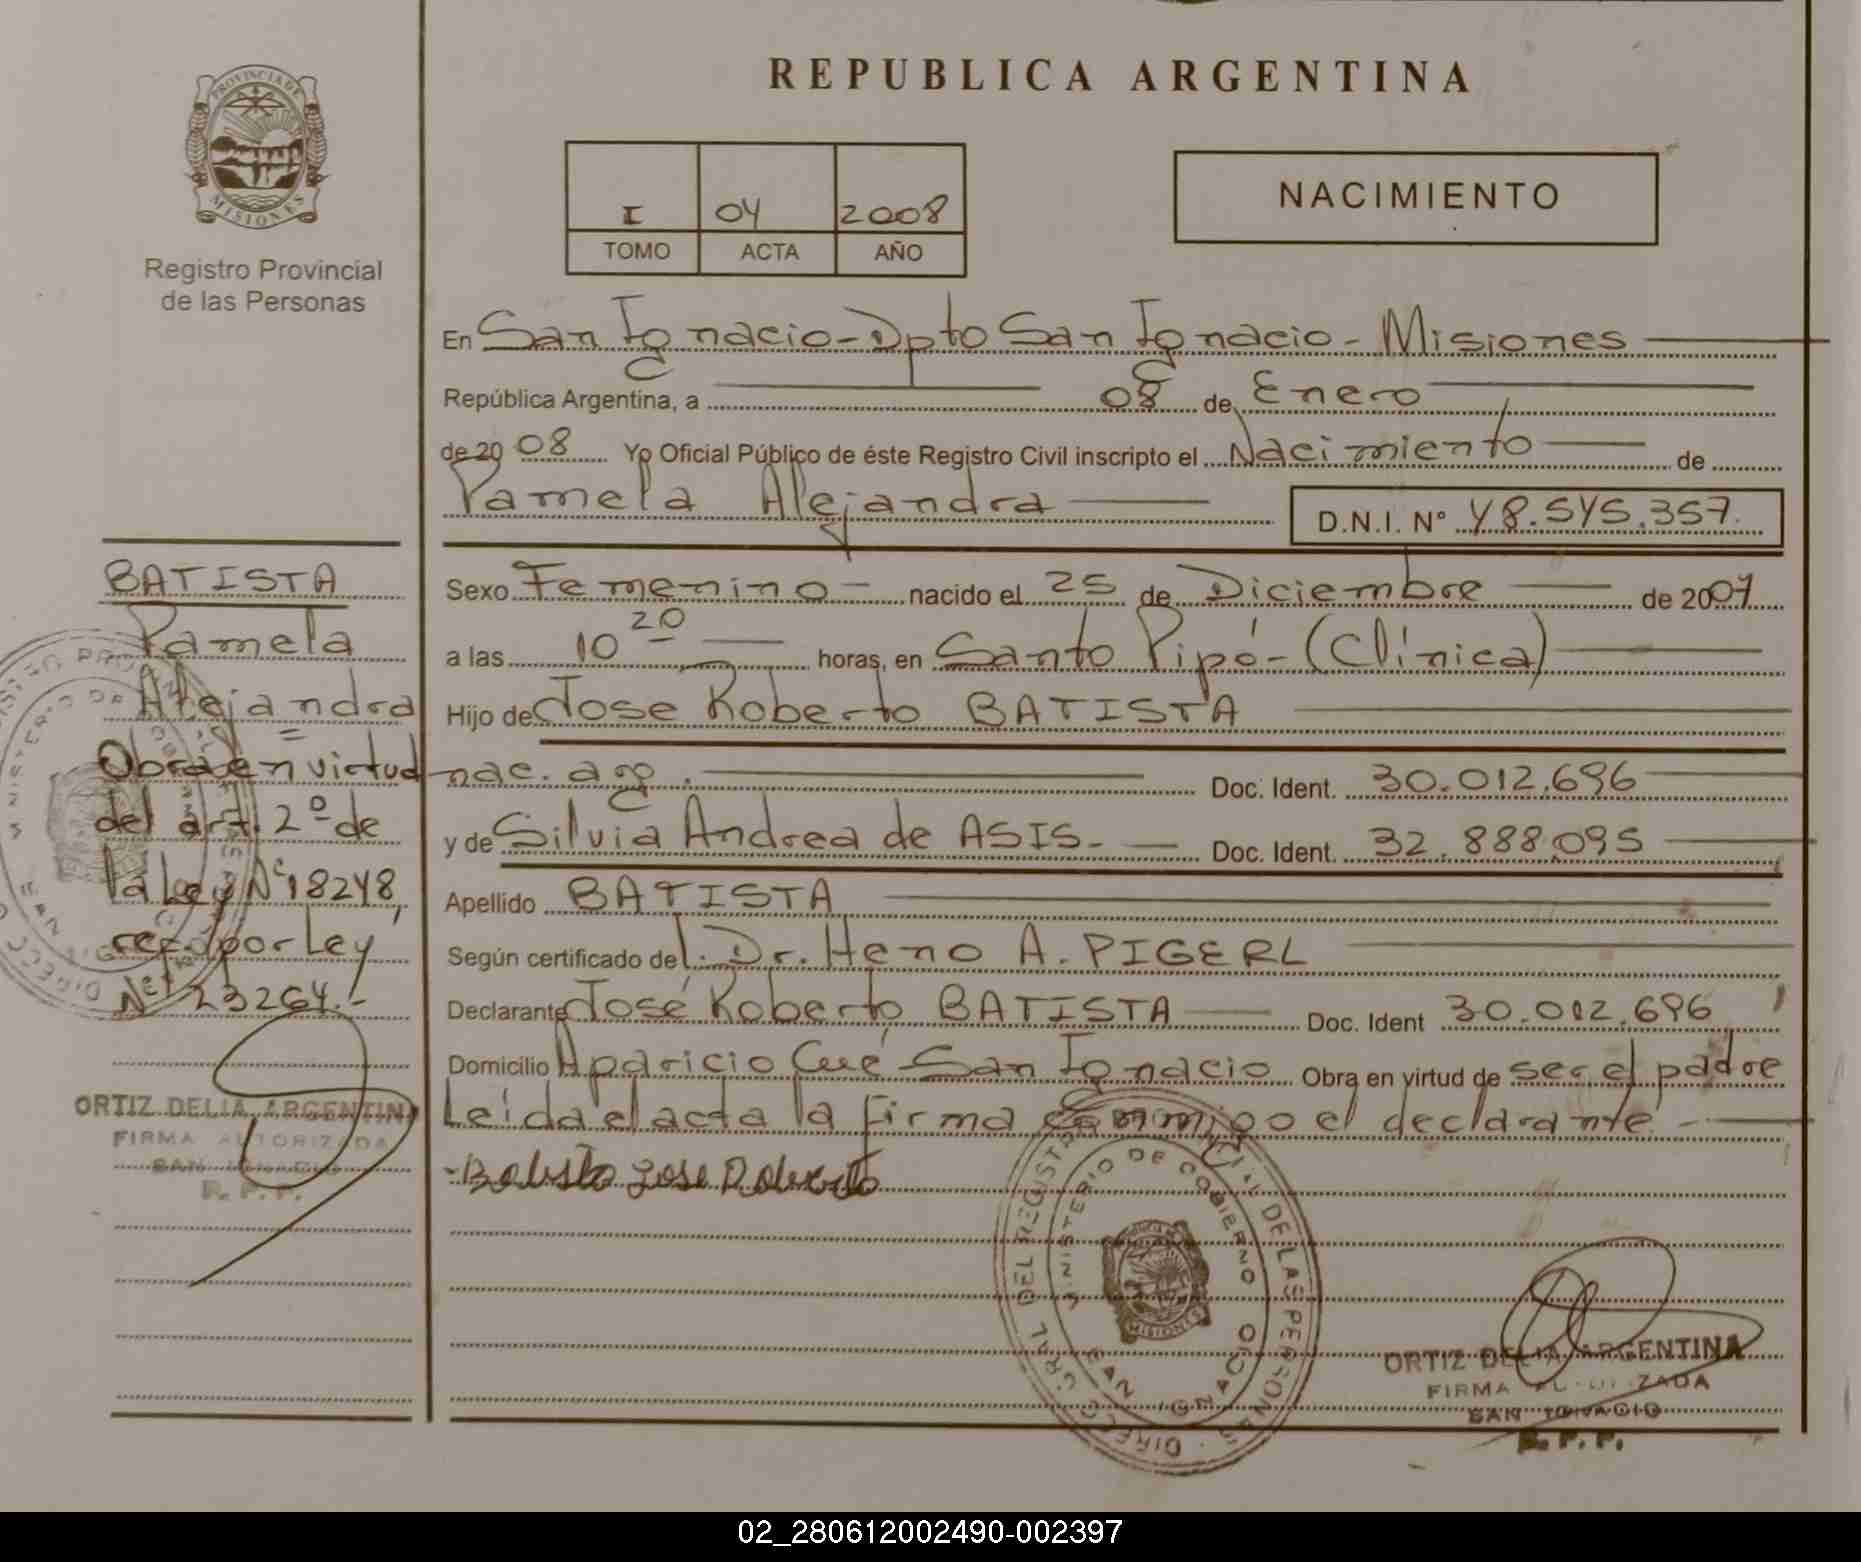 REPUBLICA ARGENTINA
PROVINCIA DE
MISIONES
Registro Provincial
de las Personas
I 04 2008
TOMO ACTA AÑO
NACIMIENTO
En San Ignacio - Dpto San Ignacio - Misiones
República Argentina, a 08 de Enero
de 2008 Yo Oficial Público de éste Registro Civil inscripto el Nacimiento de
Pamela Alejandra D.N.I. Nº 48.545.357.
Sexo Femenino nacido el 25 de Diciembre de 2007
a las 10 20 horas, en Santo Pipó - (Clínica)
Hijo de Jose Roberto BATISTA
nac. arg. Doc. Ident. 30.012.696
y de Silvia Andrea de ASIS.- Doc. Ident. 32.888.095
Apellido BATISTA
Según certificado del. Dr. Heno A. PIGERL
Declarante José Roberto BATISTA Doc. Ident 30.012.696
Domicilio Aparicio Cué San Ignacio Obra en virtud de ser el padre
Leída el acta la firma conmigo el declarante.-
Batista Jose Roberto
BATISTA
Pamela
Alejandra
Obra en virtud
del art. 2º de
la Ley Nº 18248,
ref. por Ley
Nº 23264.-
ORTIZ DELIA ARGENTINA
FIRMA AUTORIZADA
SAN IGNACIO
R. P. P.
DIRECC. GRAL. DEL REGISTRO CIVIL DE LAS PERSONAS
MINISTERIO DE GOBIERNO
SAN IGNACIO
MISIONES
ORTIZ DELIA ARGENTINA
FIRMA AUTORIZADA
SAN IGNACIO
R. P. P.
02_280612002490-002397